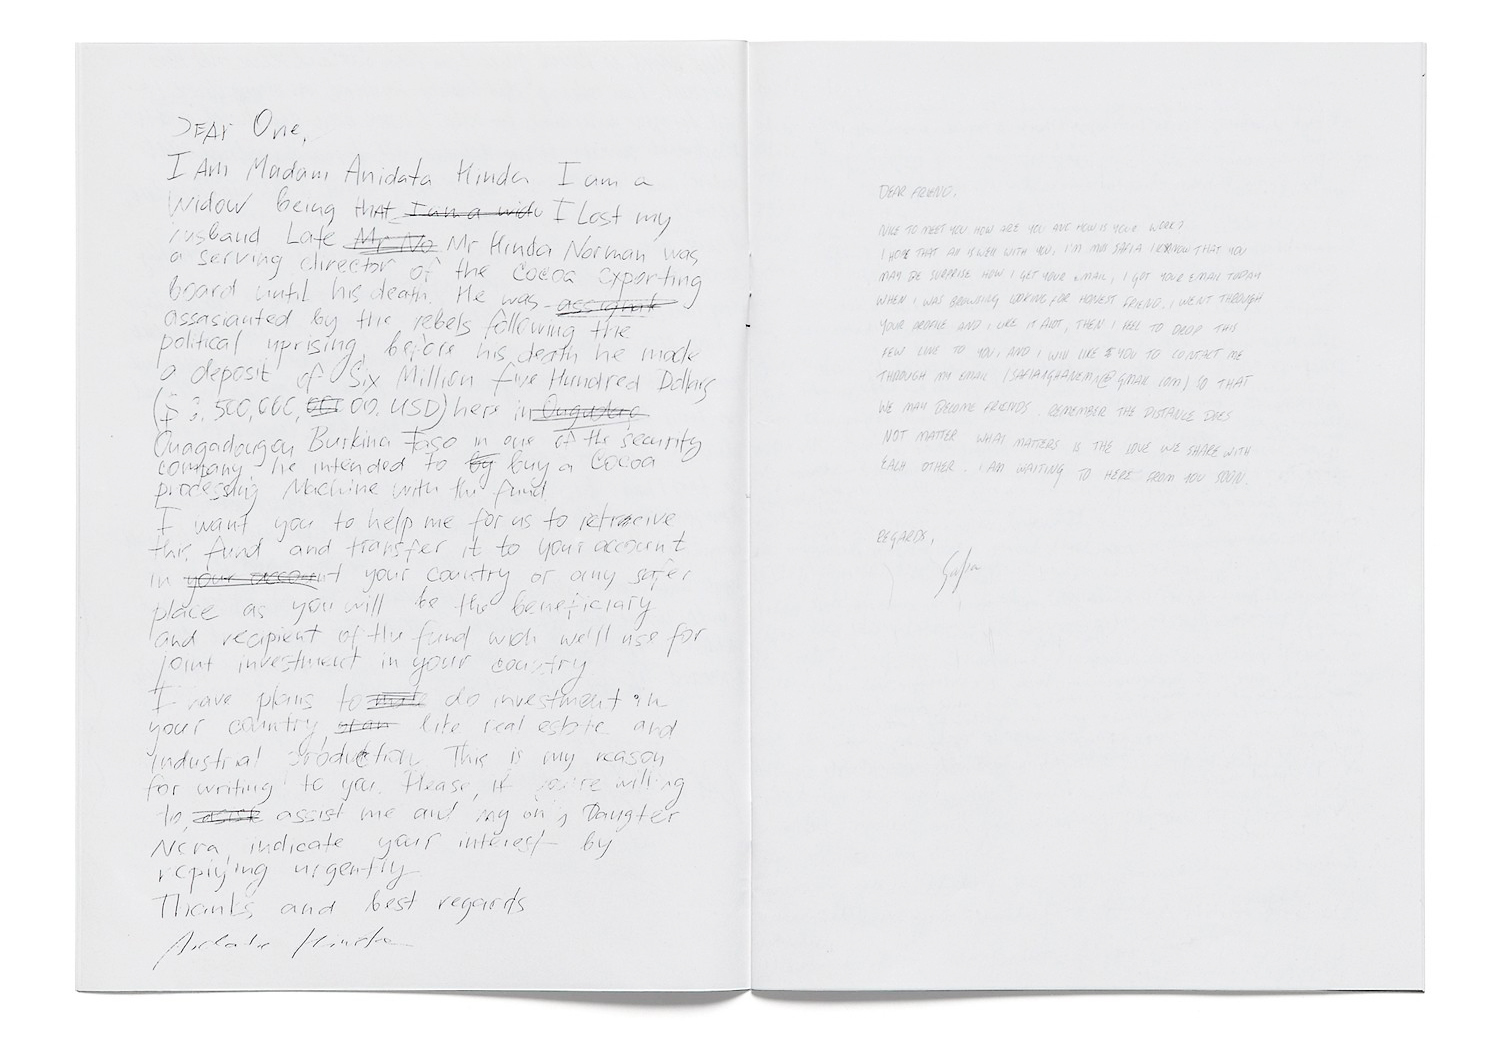 DEAr One,
I Am Madam Anidata Hinda I am a
Widow being that I am a widu I Lost my
husband Late Mr No Mr Hinda Norman was
a serving director of the Cocoa exporting
board until his death. He was assignat
assasianted by the rebels following the
political uprising, before his death he made
a deposit of Six Million five Hundred Dollars
($ 6.500,000, 00. USD) here in Ougadou
Ouagadougou Burkina Faso in one of the security
company, he intended to by buy a Cocoa
processing Machine with the fund
I want you to help me for us to retraeive
this fund and transfer it to your account
in your account your country or any safer
place as you will be the beneficiary
and recipient of the fund wich we'll use for
joint investment in your country
I have plans to do investment in
your country, like real estate and
industrial production. This is my reason
for writing to you. Please, if you're willing
to assist assist me and my only Daughter
Nora, indicate your interest by
replying urgently
Thanks and best regards
Anidata Hinda
DEAR FRIEND,
NICE TO MEET YOU HOW ARE YOU AND HOW IS YOUR WORK?
I HOPE THAT All IS WELL WITH YOU, I'M MISS SAFIA I KNOW THAT YOU
MAY BE SURPRISE HOW I GET YOUR EMAIL, I GOT YOUR EMAIL TODAY
WHEN I WAS BROWSING LOOKING FOR HONEST FRIEND. I WENT THROUGH
YOUR PROFILE AND I LIKE IT ALOT, THEN I FEEL TO DROP THIS
FEW LINE TO YOU, AND I WILL LIKE YOU TO CONTACT ME
THROUGH MY EMAIL (SAFIAIGHANEMN@GMAIL.COM) SO THAT
WE MAY BECOME FRIENDS. REMEMBER THE DISTANCE DOES
NOT MATTER WHAT MATTERS IS THE LOVE WE SHARE WITH
EACH OTHER. I AM WAITING TO HERE FROM YOU SOON.
REGARDS,
Safia